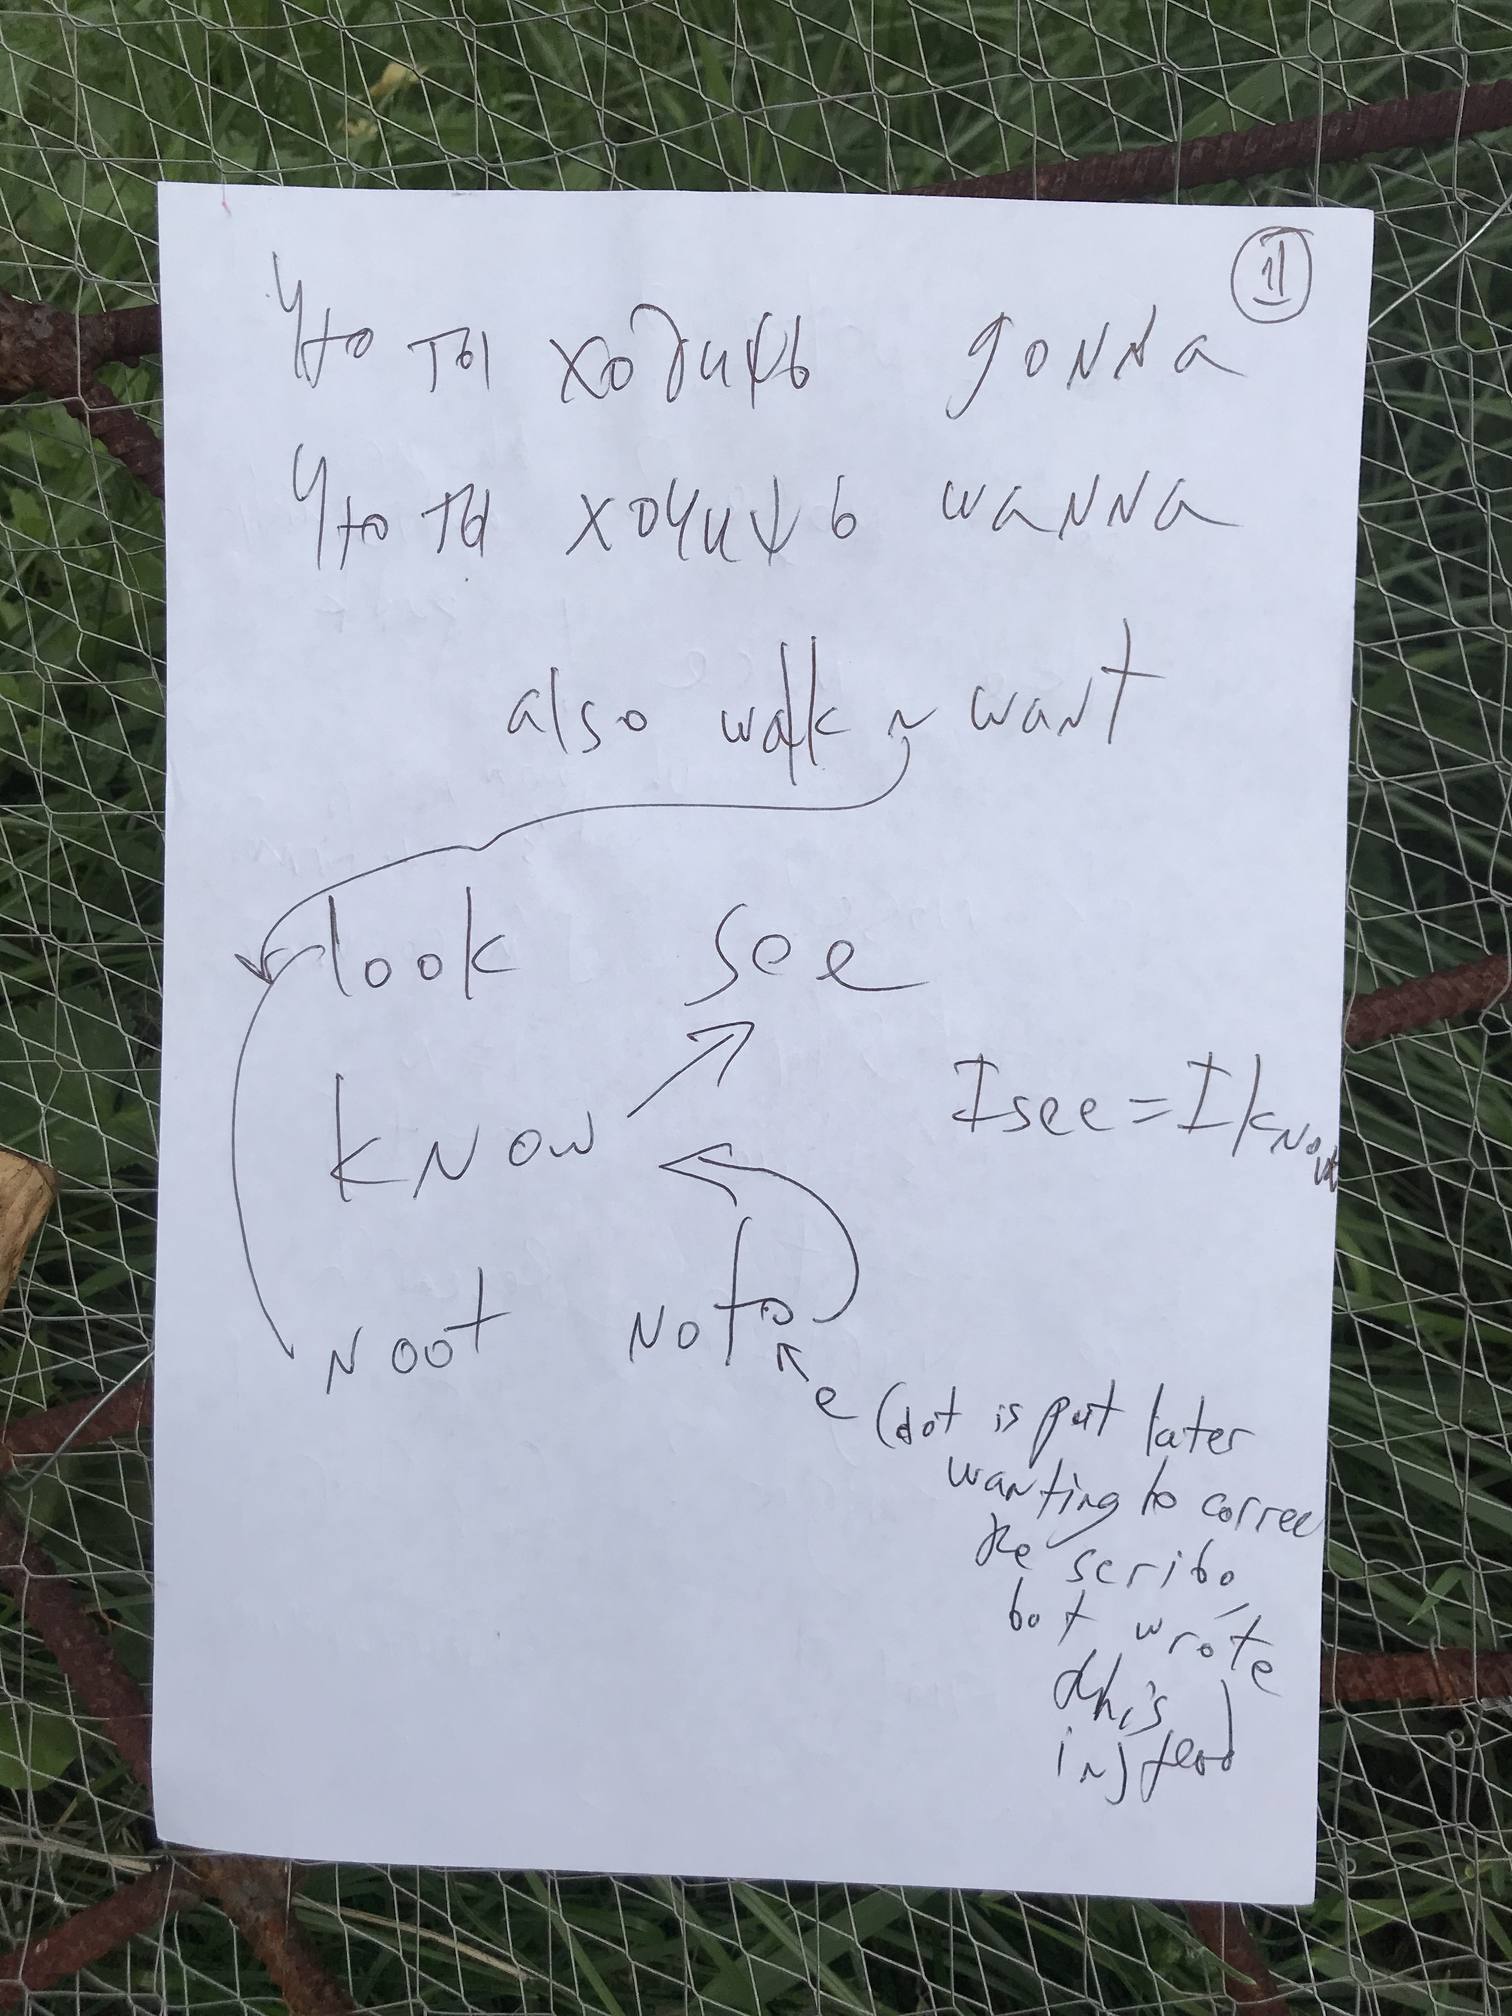 11
Что ты ходиψь gonna
Что ты хочиψь wanna
also walk ~ want
look see
know
I see = I know
noot noto
e (dot is put later
wanting to correc
the scribo,
bot wrote
this
instead)